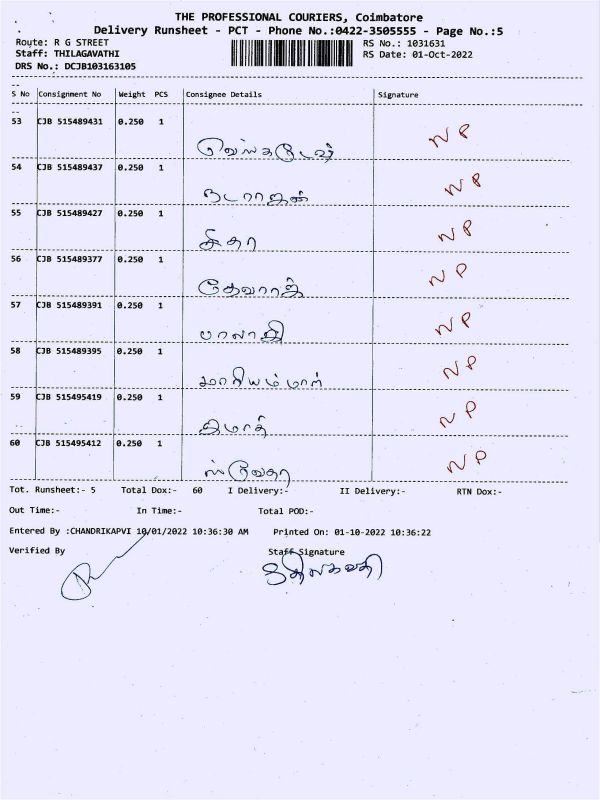 THE PROFESSIONAL COURIERS, Coimbatore
Delivery Runsheet - PCT - Phone No.:0422-3505555 - Page No.:5
Route: R G STREET RS No.: 1031631
Staff: THILAGAVATHI RS Date: 01-Oct-2022
DRS No.: DCJB103163105
S No Consignment No Weight PCS Consignee Details Signature
53 CJB 515489431 0.250 1 NP
54 CJB 515489437 0.250 1 நடராஜன் NP
55 CJB 515489427 0.250 1 NP
56 CJB 515489377 0.250 1 தேவராஜ் NP
57 CJB 515489391 0.250 1 பாலாஜி NP
58 CJB 515489395 0.250 1 மாரியம்மாள் NP
59 CJB 515495419 0.250 1 NP
60 CJB 515495412 0.250 1 NP
Tot. Runsheet:- 5 Total Dox:- 60 I Delivery:- II Delivery:- RTN Dox:-
Out Time:- In Time:- Total POD:-
Entered By :CHANDRIKAPVI 10/01/2022 10:36:30 AM Printed On: 01-10-2022 10:36:22
Verified By Staff Signature